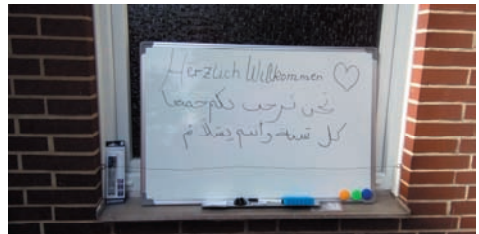 Herzlich Willkommen
نحن نرحب بكم جميعا
كل سنة وأنتم بسلام